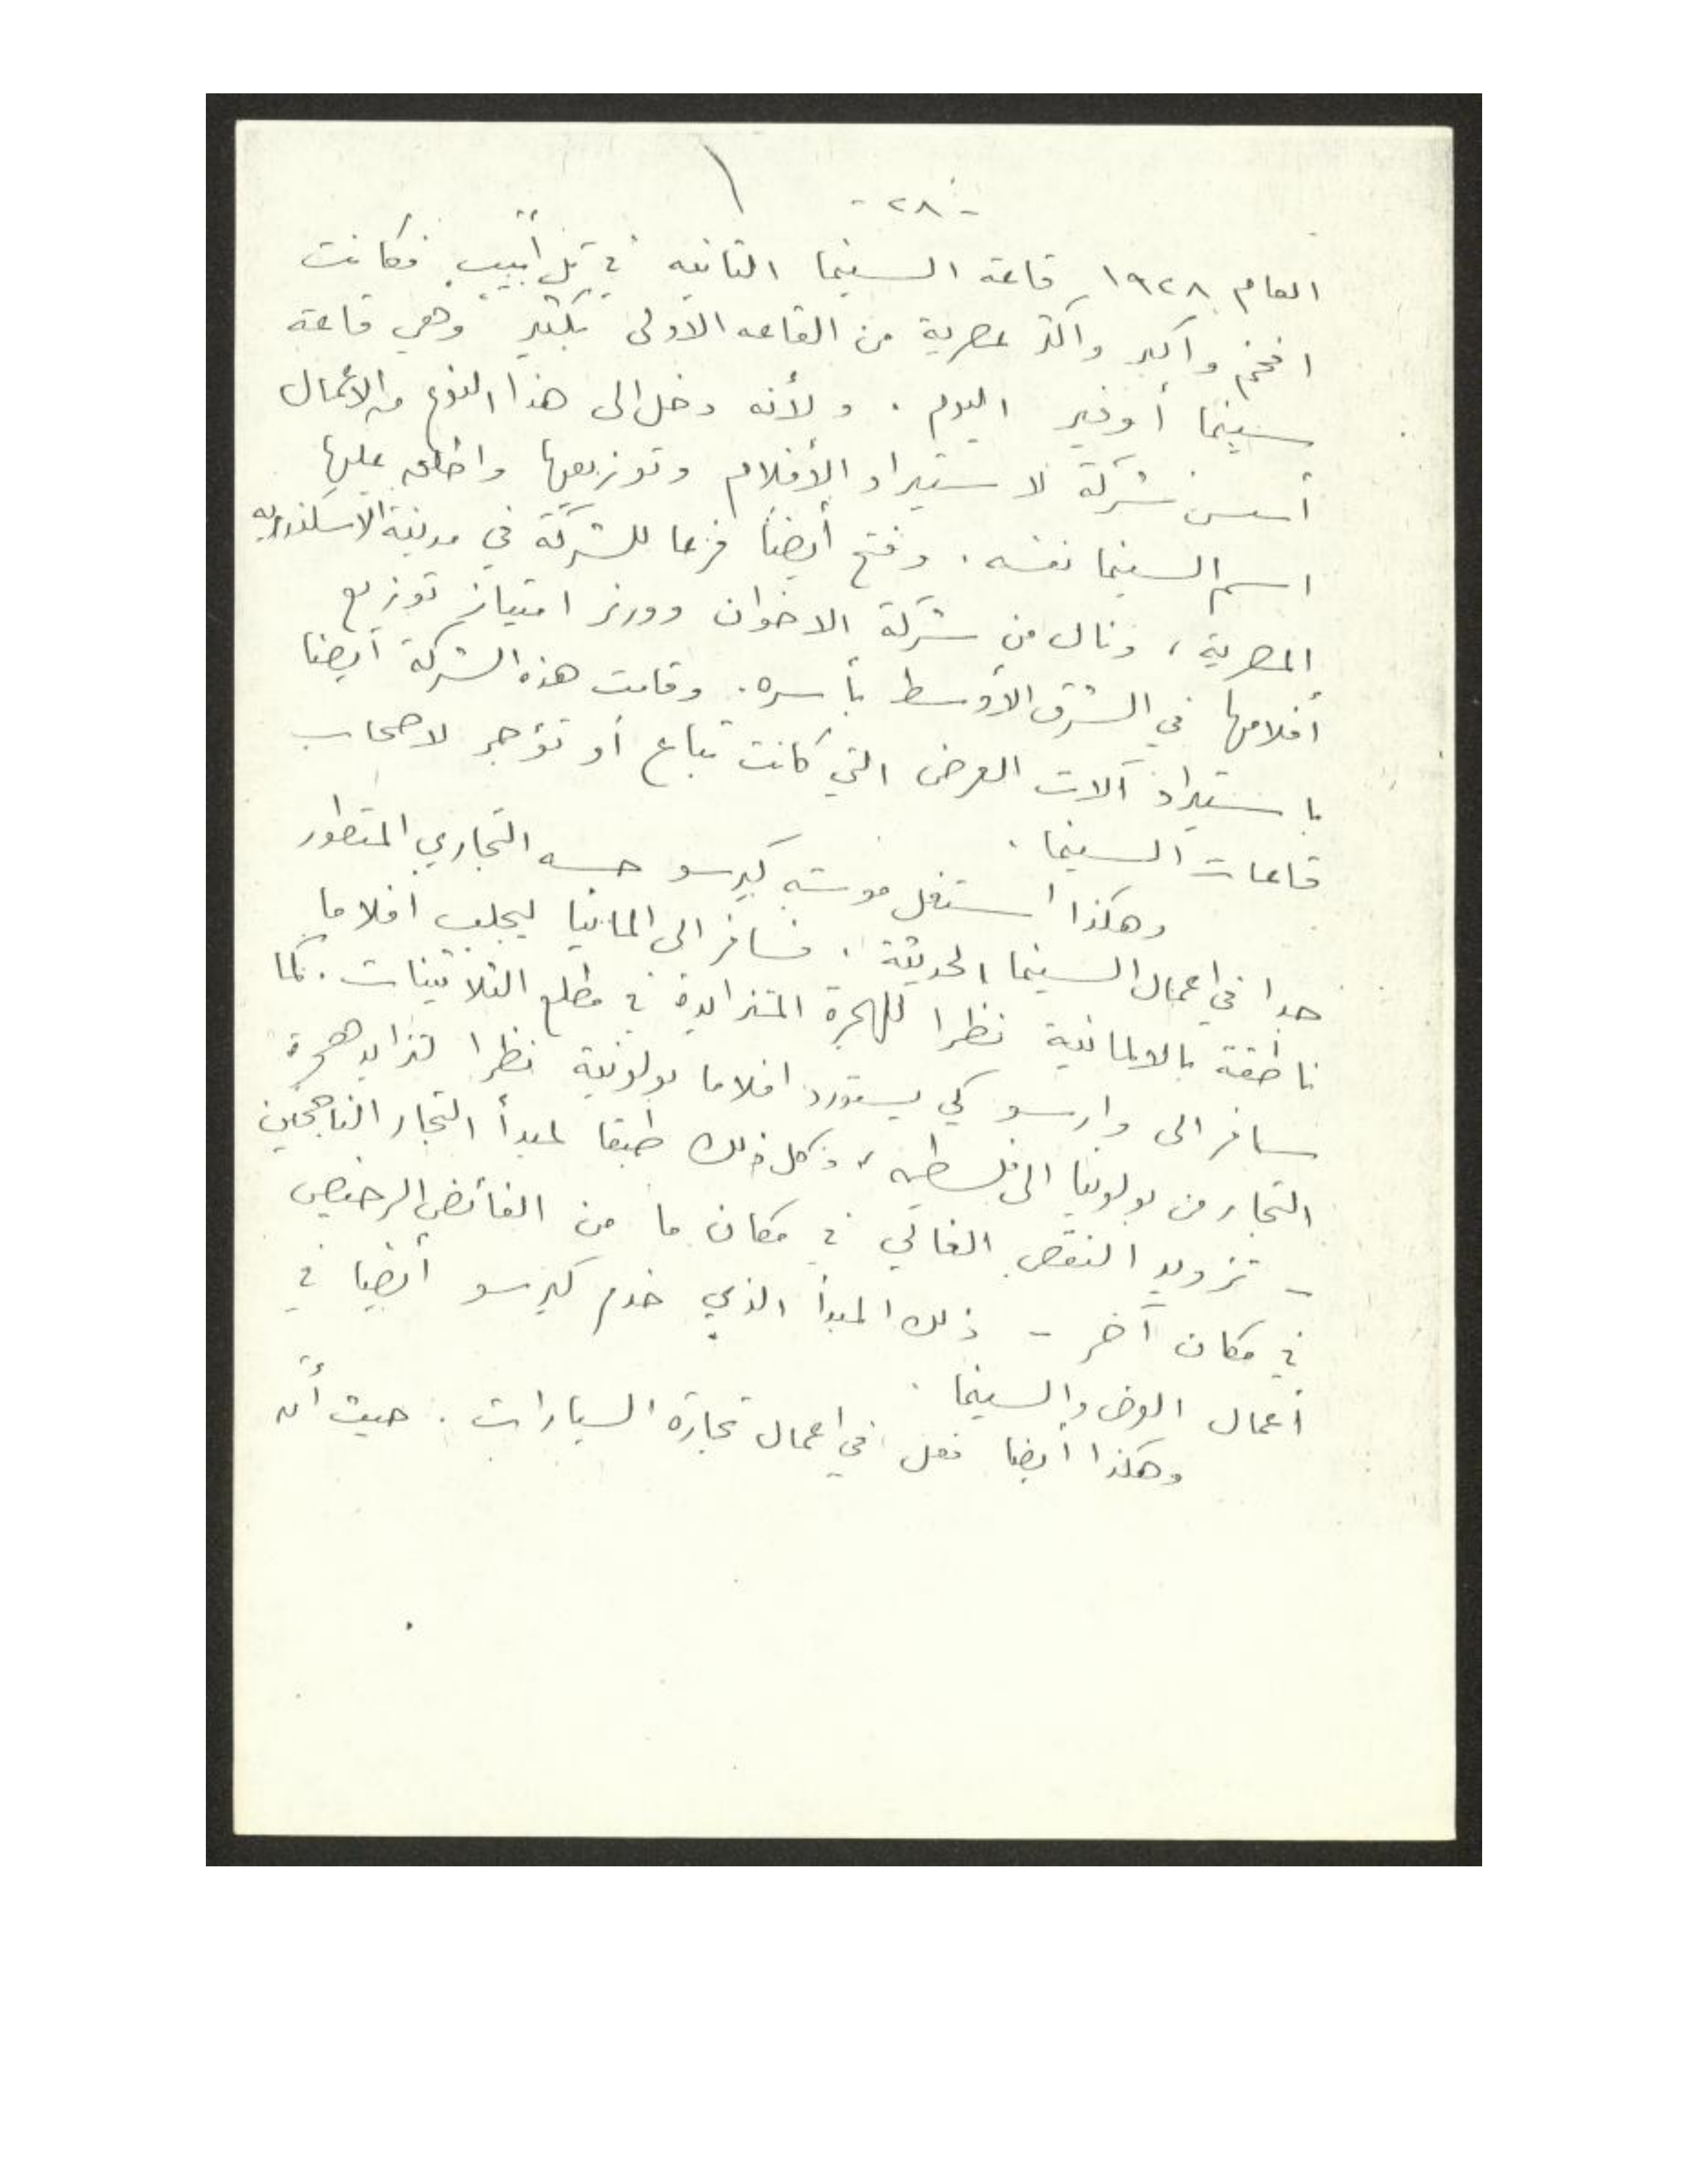 - ٢٨ -
العام ١٩٢٨ قاعة السينما الثانيه في تل أبيب فكانت
افخم وأكبر وأكثر عصرية من القاعه الاولى بكثير وهي قاعة
سينما أوفير اليوم . ولأنه دخل الى هذا النوع من الأعمال
أسس شركة لاستيراد الأفلام وتوزيعها واطلق عليها
اسم السينما نفسه . وفتح أيضاً فرعا للشركة في مدينة الاسكندريه
المصرية ، ونال من شركة الاخوان وورنر امتياز توزيع
أفلامها في الشرق الأوسط بأسره . وقامت هذه الشركة أيضا
باستيراد آلات العرض التي كانت تباع أو تؤجر لاصحاب
قاعات السينما .
وهكذا استغل موشيه كيرسو حسه التجاري المتطور
جدا في اعمال السينما الحديثة . فسافر الى المانيا ليجلب افلاما
ناطقة بالالمانية نظرا للهجرة المتزايدة في مطلع الثلاثينات . كما
سافر الى وارسو كي يستورد افلاما بولونية نظرا لتزايد هجرة
التجار من بولونيا الى فلسطين ، وكل ذلك طبقا لمبدأ التجار الناجحين
- تزويد النقص الغالي في مكان ما من الفائض الرخيص
في مكان آخر - ذلك المبدأ الذي خدم كيرسو أيضا في
أعمال العرض والسينما .
وهكذا أيضا فعل في اعمال تجارة السيارات . حيث أنه